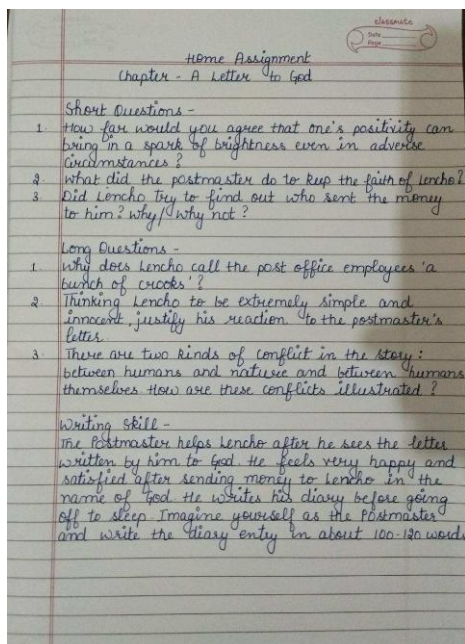 classmate
Date
Page
Home Assignment
Chapter - A Letter to God
Short Questions -
1. How far would you agree that one's positivity can
bring in a spark of brightness even in adverse
circumstances?
2. What did the postmaster do to keep the faith of Lencho?
3. Did Lencho try to find out who sent the money
to him? why/why not?
Long Questions -
1. Why does Lencho call the post office employees 'a
bunch of crooks'?
2. Thinking Lencho to be extremely simple and
innocent, justify his reaction to the postmaster's
letter.
3. There are two kinds of conflict in the story:
between humans and nature and between humans
themselves. How are these conflicts illustrated?
Writing Skill -
The Postmaster helps Lencho after he sees the letter
written by him to God. He feels very happy and
satisfied after sending money to Lencho in the
name of God. He writes his diary before going
off to sleep. Imagine yourself as the Postmaster
and write the diary entry in about 100-120 words